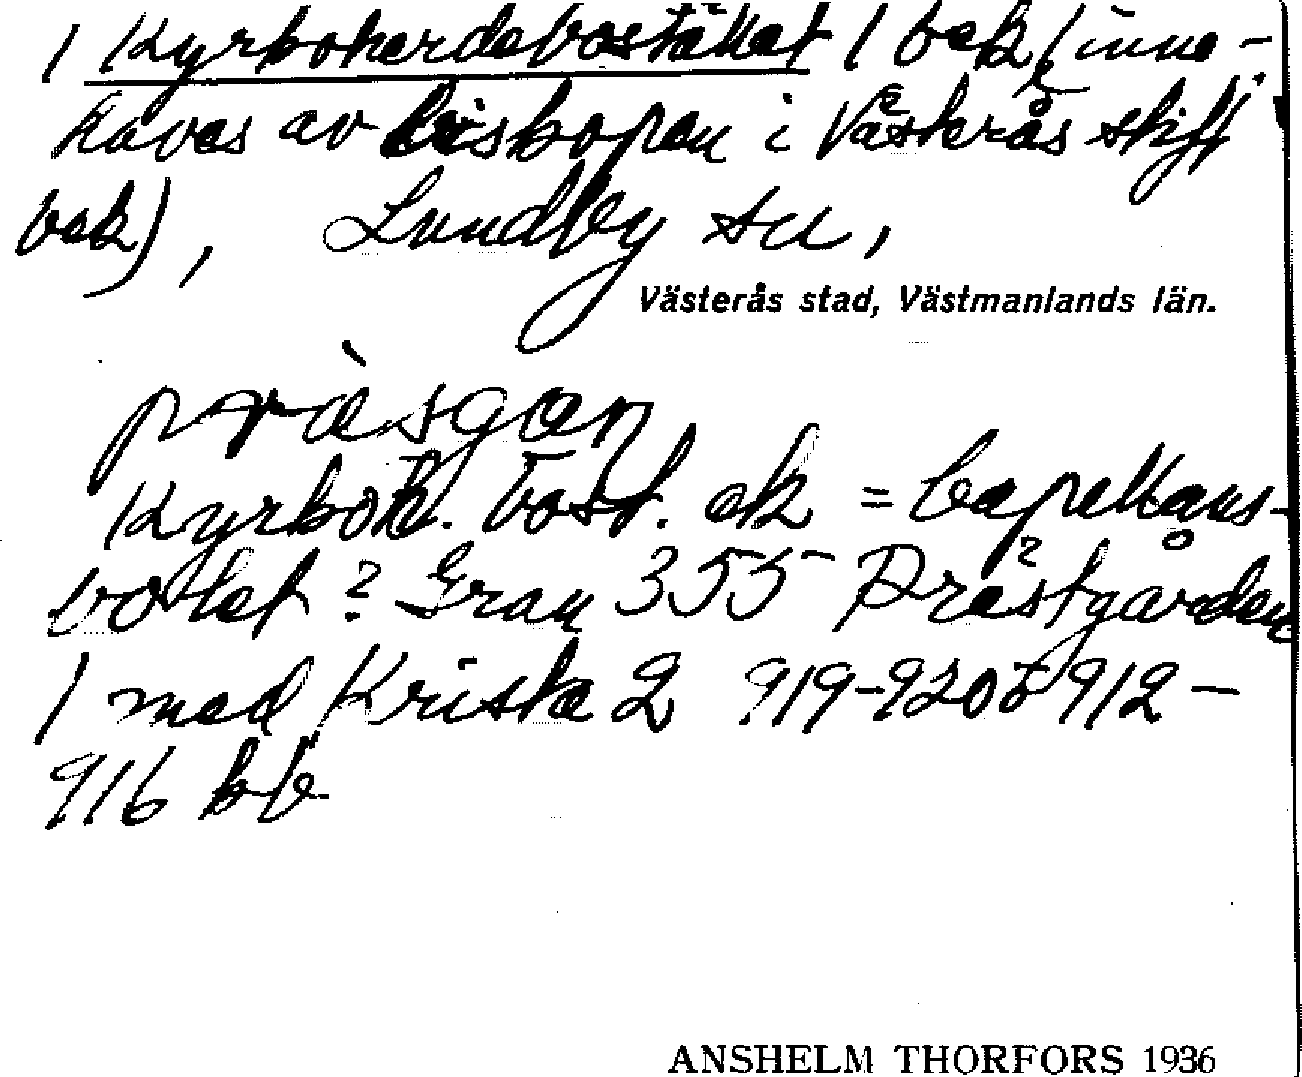 1 Kyrkoherdebostället 1 bek (inne-
haves av biskopen i Västerås stift
bek), Lundby sn,
Västerås stad, Västmanlands län.
pràsgan
Kyrkoh. bost. ek = Capellans-
bolet? Gran 355 Prästgården
1 med Kriska 2 919-920 o 912-
916 bb
ANSHELM THORFORS 1936